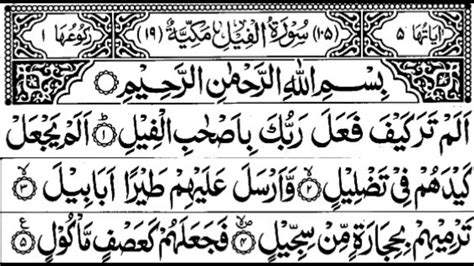 اٰیاتها ٥ (١٠٥) سُوْرَةُ الْفِیْلِ مَكِّیَّةٌ (١٩) ركوعها ١
بِسْمِ اللّٰهِ الرَّحْمٰنِ الرَّحِیْمِ
اَلَمْ تَرَ كَیْفَ فَعَلَ رَبُّكَ بِاَصْحٰبِ الْفِیْلِ ١ اَلَمْ یَجْعَلْ
كَیْدَهُمْ فِیْ تَضْلِیْلٍ ٢ وَّاَرْسَلَ عَلَیْهِمْ طَیْرًا اَبَابِیْلَ ٣
تَرْمِیْهِمْ بِحِجَارَةٍ مِّنْ سِجِّیْلٍ ٤ فَجَعَلَهُمْ كَعَصْفٍ مَّاْكُوْلٍ ٥